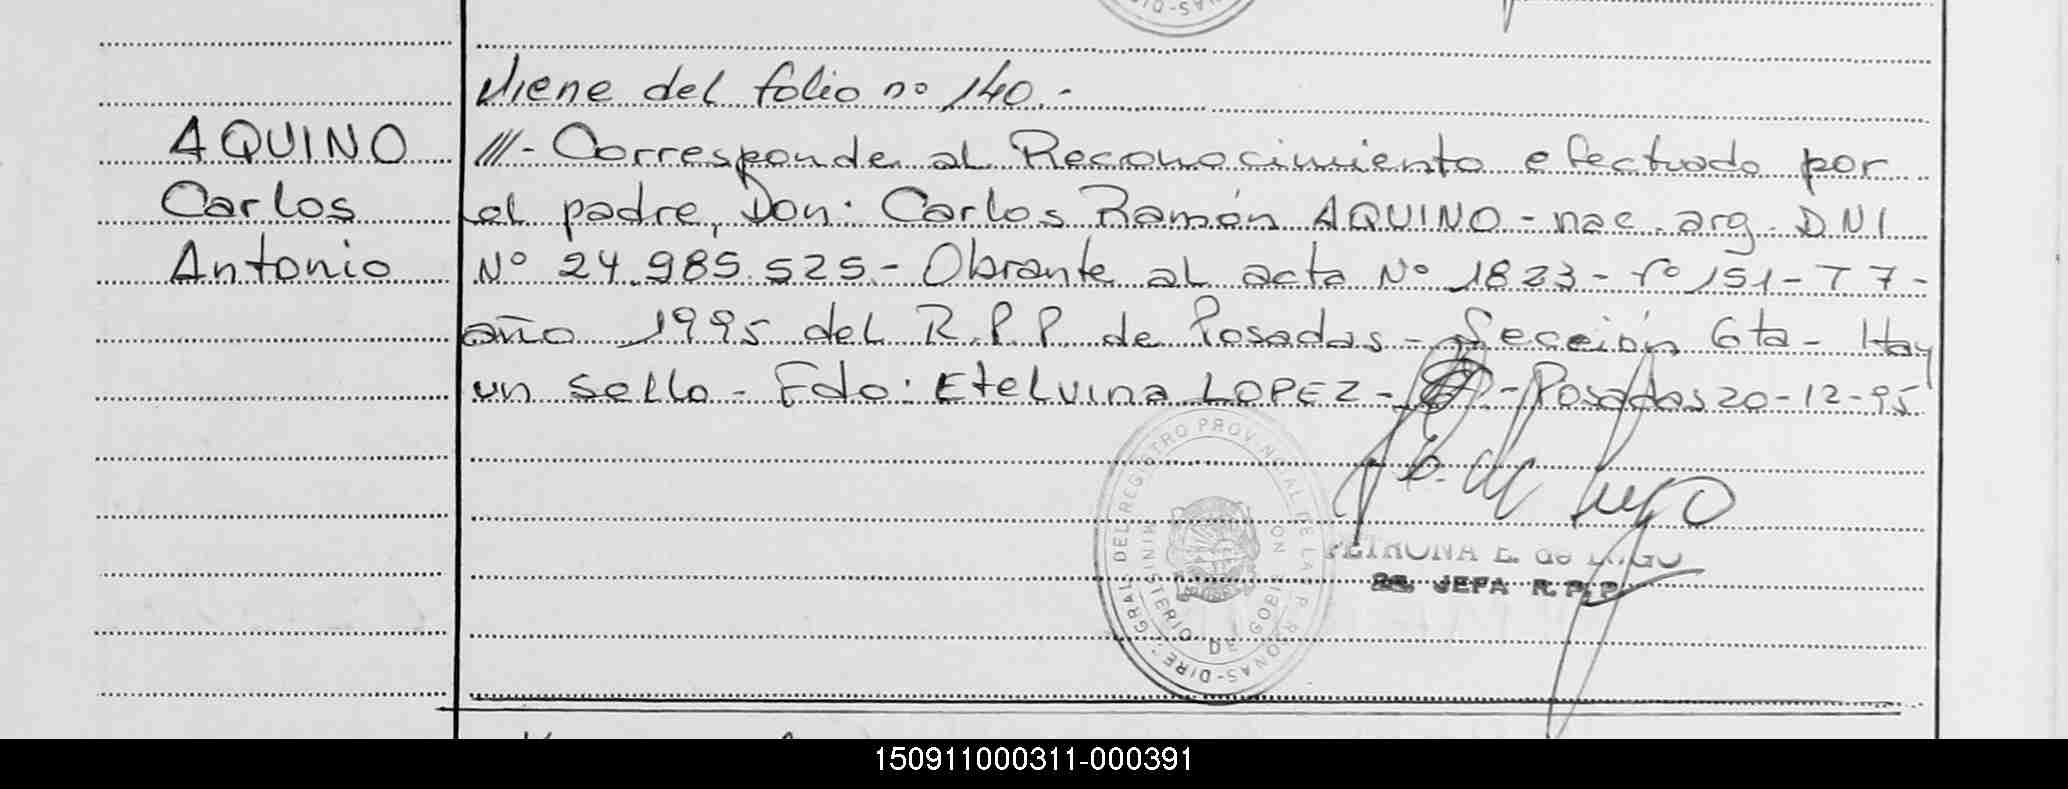 Viene del folio nº 140.-
AQUINO
Carlos
Antonio
///- Corresponde al Reconocimiento efectuado por
el padre, Don: Carlos Ramón AQUINO - nac. arg. DNI
Nº 24.985.525.- Obrante al acta Nº 1823 - Fº 151 - T 7 -
año 1995 del R.P.P. de Posadas - Sección 6ta - Hay
un sello - Fdo: Etelvina LOPEZ - - Posadas 20-12-95
GRAL. DEL REGISTRO PROVINCIAL DE LAS PERSONAS-DIRE
MINISTERIO DE GOBIERNO
PETRONA E. de LUGO
JEFA R.P.P.
150911000311-000391